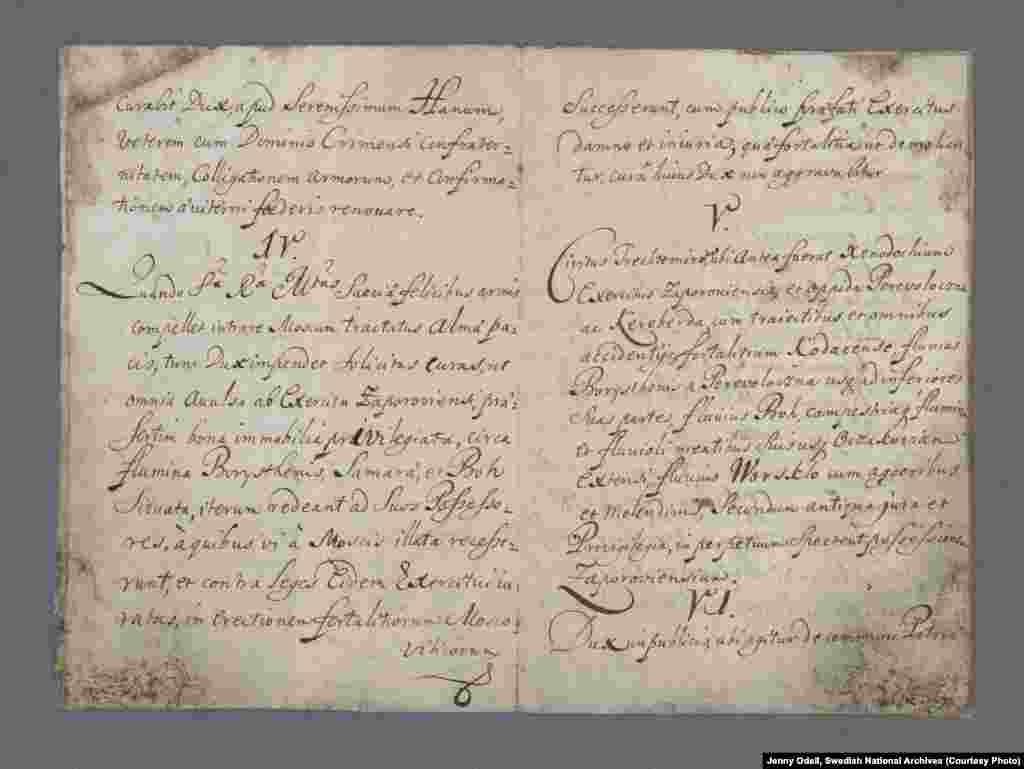 curabit Dux, apud Serenissimum Hanum,
veterem cum Dominio Crimensi confrater-
nitatem, Colligationem armorum, et Confirma-
tionem aviterni fœderis renovare.
IV.
Quando S.a R.a M.tas Sueciæ felicibus armis
compellet intrare Moscum tractatus alma pa-
cis, tunc Dux impendet solicitas curas, ut
omnia avulsa ab Exercitu Zaporoviensi, præ-
sertim bona immobilia privilegiata, circa
flumina Borysthenis, Samara, et Boh
situata, iterum redeant ad suos Possesso-
res, à quibus vi à Moscis illata recesse-
runt, et contra Leges Eidem Exercitui iu-
ratas, in erectionem fortalitiorum Mosco-
viticorum
successerunt, cum publico præfati Exercitus
damno et iniuria, quæ fortalitia ut demolien
tur, cura huius Dux non aggravabitur
V.
Civitas Trechtemirow, ubi Antea fuerat Xenodochium
Exercitus Zaporoviensis, et oppida Perevoloczna
ac Kereberda, cum traiectibus et omnibus
accidentijs, fortalitium Kodacense, fluvius
Borysthenes a Perevoloczna usq ad inferiores
suas partes, fluvius Boh, campestriaq flumina
et fluvioli meatibus suis usq Oczakoviam
extensi, fluvius Worsklo cum aggeribus
et molendinis, Secundum antiqua jura et
Privilegia, in perpetuum spectent possessionem
Zaporoviensium.
VI.
Dux in publicis, ubi agitur de communi Patriæ